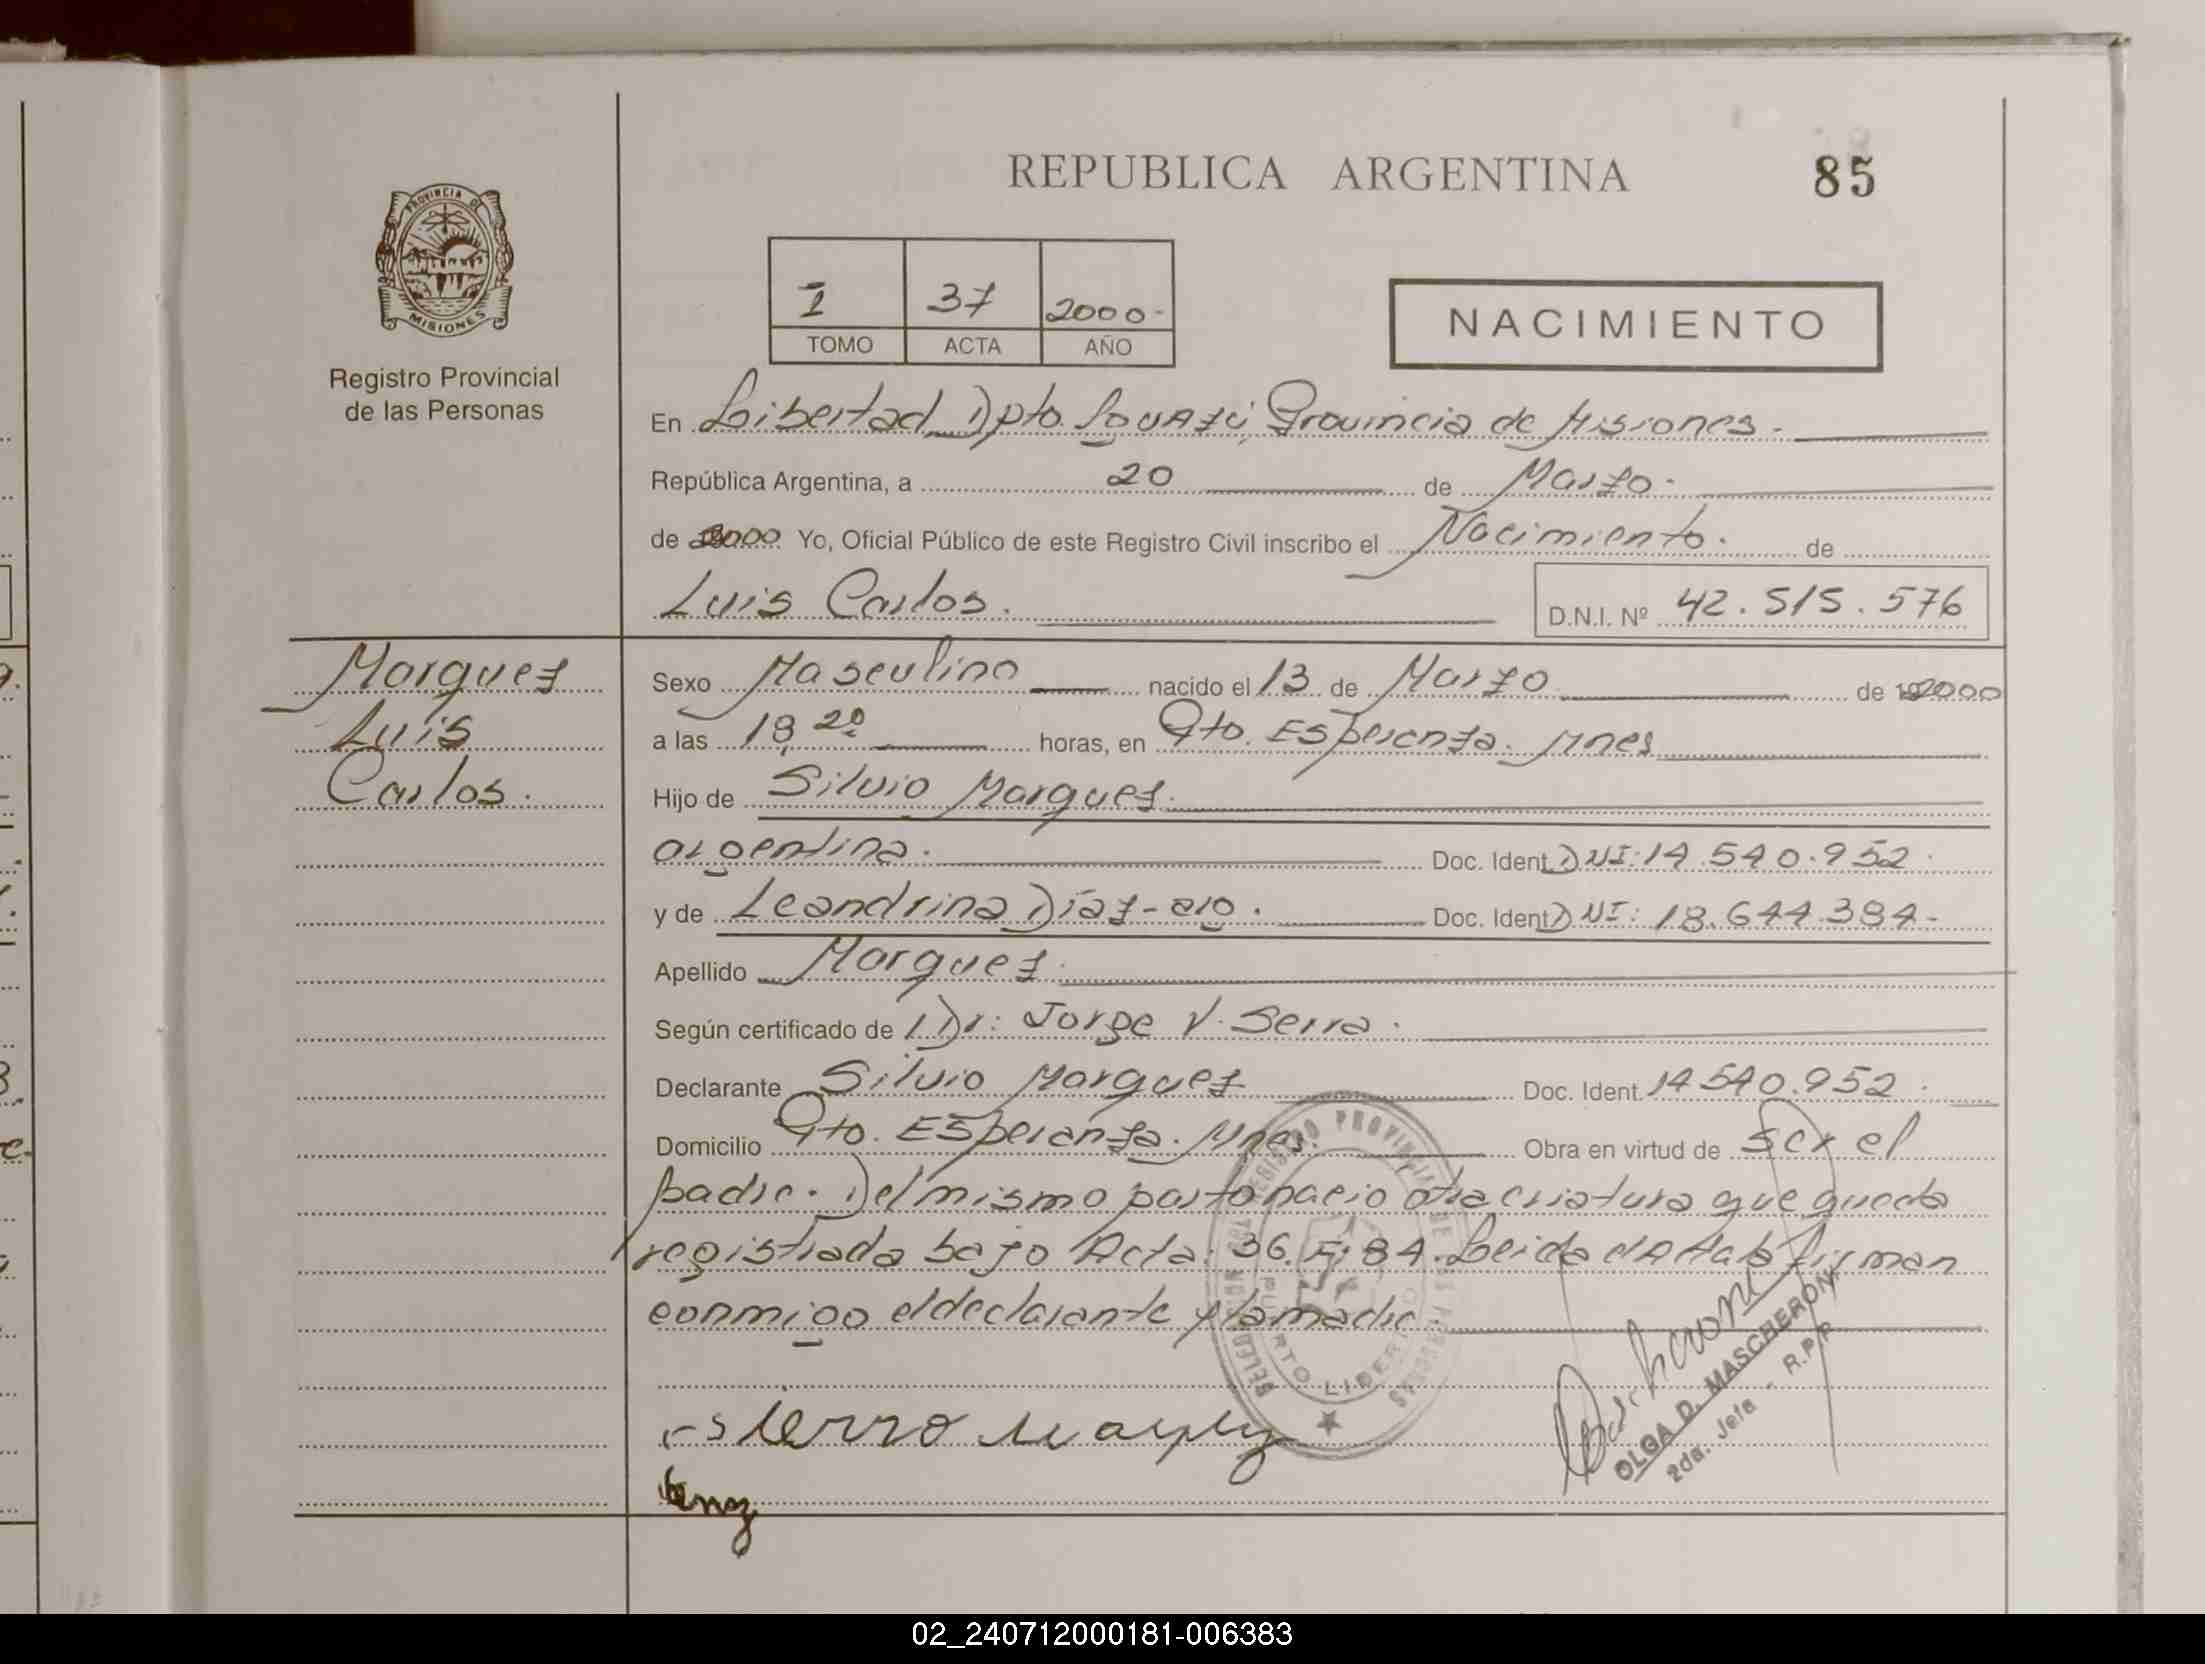 REPUBLICA ARGENTINA
85
PROVINCIA DE
MISIONES
Registro Provincial
de las Personas
I 37 2000-
TOMO ACTA AÑO
NACIMIENTO
En Libertad Dpto. Iguazú, Provincia de Misiones.
República Argentina, a 20 de Marzo.
de 2000 Yo, Oficial Público de este Registro Civil inscribo el Nacimiento. de
Luis Carlos. D.N.I. Nº 42.515.576
Marques
Luis
Carlos.
Sexo Masculino nacido el 13 de Marzo de 2000
a las 18,20 horas, en Pto. Esperanza. Mnes
Hijo de Silvio Marques.
argentina. Doc. Ident. DNI: 14.540.952.
y de Leandrina Díaz-arg. Doc. Ident. DNI: 18.644.384-
Apellido Marques.
Según certificado de Dr: Jorge V. Serra.
Declarante Silvio Marques Doc. Ident. 14540.952.
Domicilio Pto. Esperanza. Mnes. Obra en virtud de ser el
padre. Del mismo parto nacio otra criatura que queda
registrada bajo Acta: 36. F: 84. Leida el Acta la firman
conmigo el declarante y la madre
PUERTO LIBERTAD
OLGA D. MASCHERONI
2da. Jefa - R.P.P.
02_240712000181-006383